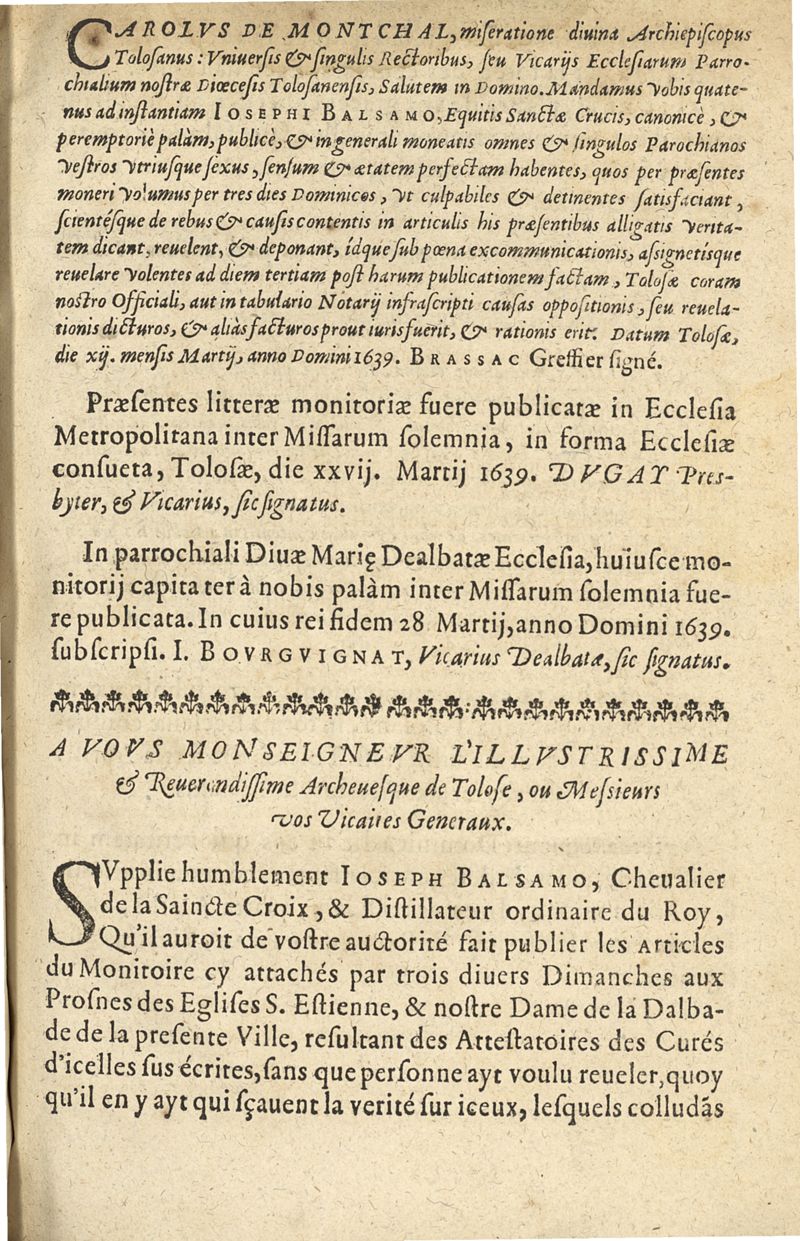 CAROLVS DE MONTCHAL, miſeratione diuina Archiepiſcopus
Toloſanus: Vniuerſis & ſingulis Rectoribus, ſeu Vicarijs Eccleſiarum Parro-
chialium noſtræ Diœceſis Toloſanenſis, Salutem in Domino. Mandamus vobis quate-
nus ad inſtantiam IOSEPHI BALSAMO, Equitis Sanctæ Crucis, canonicè, &
peremptoriè palàm, publicè, & in generali moneatis omnes & ſingulos Parochianos
veſtros vtriuſque ſexus, ſenſum & ætatem perfectam habentes, quos per præſentes
moneri volumus per tres dies Dominicos, vt culpabiles & detinentes ſatisfaciant,
ſcientéſque de rebus & cauſis contentis in articulis his præſentibus alligatis verita-
tem dicant, reuelent, & deponant, idque ſub pœna excommunicationis, aſſignetíſque
reuelare volentes ad diem tertiam poſt harum publicationem factam, Toloſæ coram
noſtro Officiali, aut in tabulario Notarij infraſcripti cauſas oppoſitionis, ſeu reuela-
tionis dicturos, & aliàs facturos prout iuris fuerit, & rationis erit. Datum Toloſæ,
die xij. menſis Martij, anno Domini 1639. BRASSAC Greffier ſigné.
Præſentes litteræ monitoriæ fuere publicatæ in Eccleſia
Metropolitana inter Miſſarum ſolemnia, in forma Eccleſiæ
conſueta, Toloſæ, die xxvij. Martij 1639. DVGAY Preſ-
byter, & Vicarius, ſic ſignatus.
In parrochiali Diuæ Marię Dealbatæ Eccleſia, huiuſce mo-
nitorij capita ter à nobis palàm inter Miſſarum ſolemnia fue-
re publicata. In cuius rei fidem 28 Martij, anno Domini 1639.
ſubſcripſi. I. BOVRGVIGNAT, Vicarius Dealbatæ, ſic ſignatus.
A VOVS MONSEIGNEVR L'ILLVSTRISSIME
& Reuerendiſſime Archeueſque de Toloſe, ou Meſsieurs
vos Vicaires Generaux.
SVpplie humblement IOSEPH BALSAMO, Cheualier
de la Saincte Croix, & Diſtillateur ordinaire du Roy,
Qu'il auroit de voſtre auctorité fait publier les Articles
du Monitoire cy attachés par trois diuers Dimanches aux
Proſnes des Egliſes S. Eſtienne, & noſtre Dame de la Dalba-
de de la preſente Ville, reſultant des Atteſtatoires des Curés
d'icelles ſus écrites, ſans que perſonne ayt voulu reueler, quoy
qu'il en y ayt qui ſçauent la verité ſur iceux, leſquels colludãs